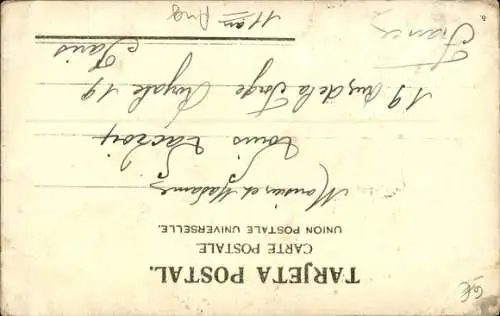 TARJETA POSTAL.
CARTE POSTALE.
UNION POSTALE UNIVERSELLE.
Monsieur et Madame
Louis Lacroix
19 Rue de la Forge Royale 19
Paris
11 arr
France